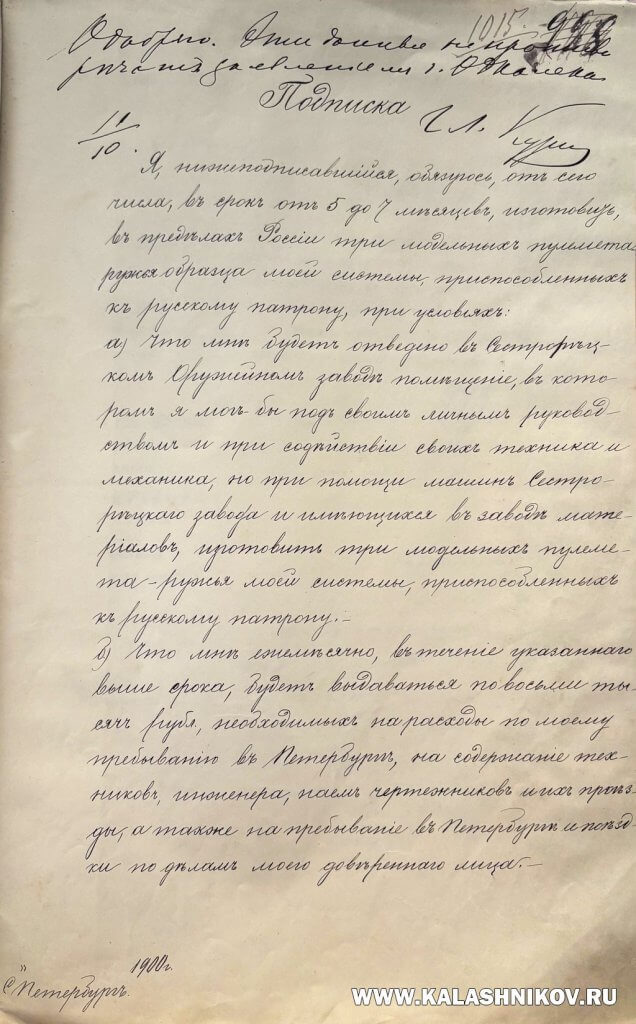 1015
Одобряю. Эти данные не проти-
Подписка
11/10.
Я, нижеподписавшійся, обязуюсь, отъ сего
числа, въ срокъ отъ 5 до 7 мѣсяцевъ, изготовить,
въ предѣлахъ Россіи три модельныхъ пулемета-
ружья образца моей системы, приспособленныхъ
къ русскому патрону, при условіяхъ:
а) Что мнѣ будетъ отведено въ Сестрорѣц-
комъ Оружейномъ заводѣ помѣщеніе, въ кото-
ромъ я могъ-бы подъ своимъ личнымъ руковод-
ствомъ и при содѣйствіи своихъ техника и
механика, но при помощи машинъ Сестро-
рѣцкаго завода и имѣющихся въ заводѣ мате-
ріаловъ, изготовить три модельныхъ пулеме-
та-ружья моей системы, приспособленныхъ
къ русскому патрону.-
б) Что мнѣ ежемѣсячно, въ теченіе указаннаго
выше срока, будетъ выдаваться по восьми ты-
сячъ рубл., необходимыхъ на расходы по моему
пребыванію въ Петербургѣ, на содержаніе тех-
никовъ, инженера, наемъ чертежниковъ и ихъ проѣз-
ды, а также на пребываніе въ Петербургѣ и поѣзд-
ки по дѣламъ моего довѣреннаго лица.-
" 1900г.
С. Петербургъ.
WWW.KALASHNIKOV.RU